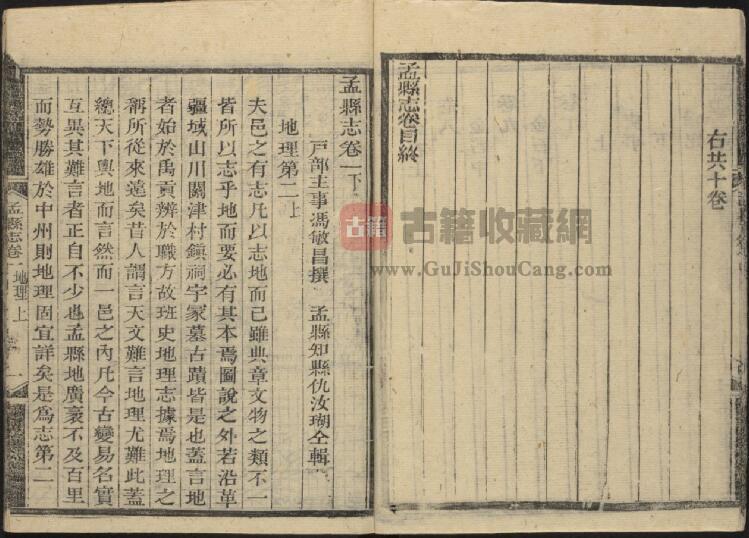 右共十卷
孟縣志卷目終
孟縣志卷一下
戶部主事馮敏昌撰 孟縣知縣仇汝瑚仝輯
地理第二上
夫邑之有志凡以志地而已雖典章文物之類不一
皆所以志乎地而要必有其本焉圖說之外若沿革
疆域山川關津村鎮祠宇冢墓古蹟皆是也蓋言地
者始於禹貢辨於職方故班史地理志據焉地理之
稱所從來遠矣昔人謂言天文難言地理尤難此蓋
總天下輿地而言然而一邑之內凡今古變易名實
互異其難言者正自不少也孟縣地廣袤不及百里
而勢勝雄於中州則地理固宜詳矣是為志第二
孟縣志卷一 地理上 一
古籍 古籍收藏網
www.GuJiShouCang.com